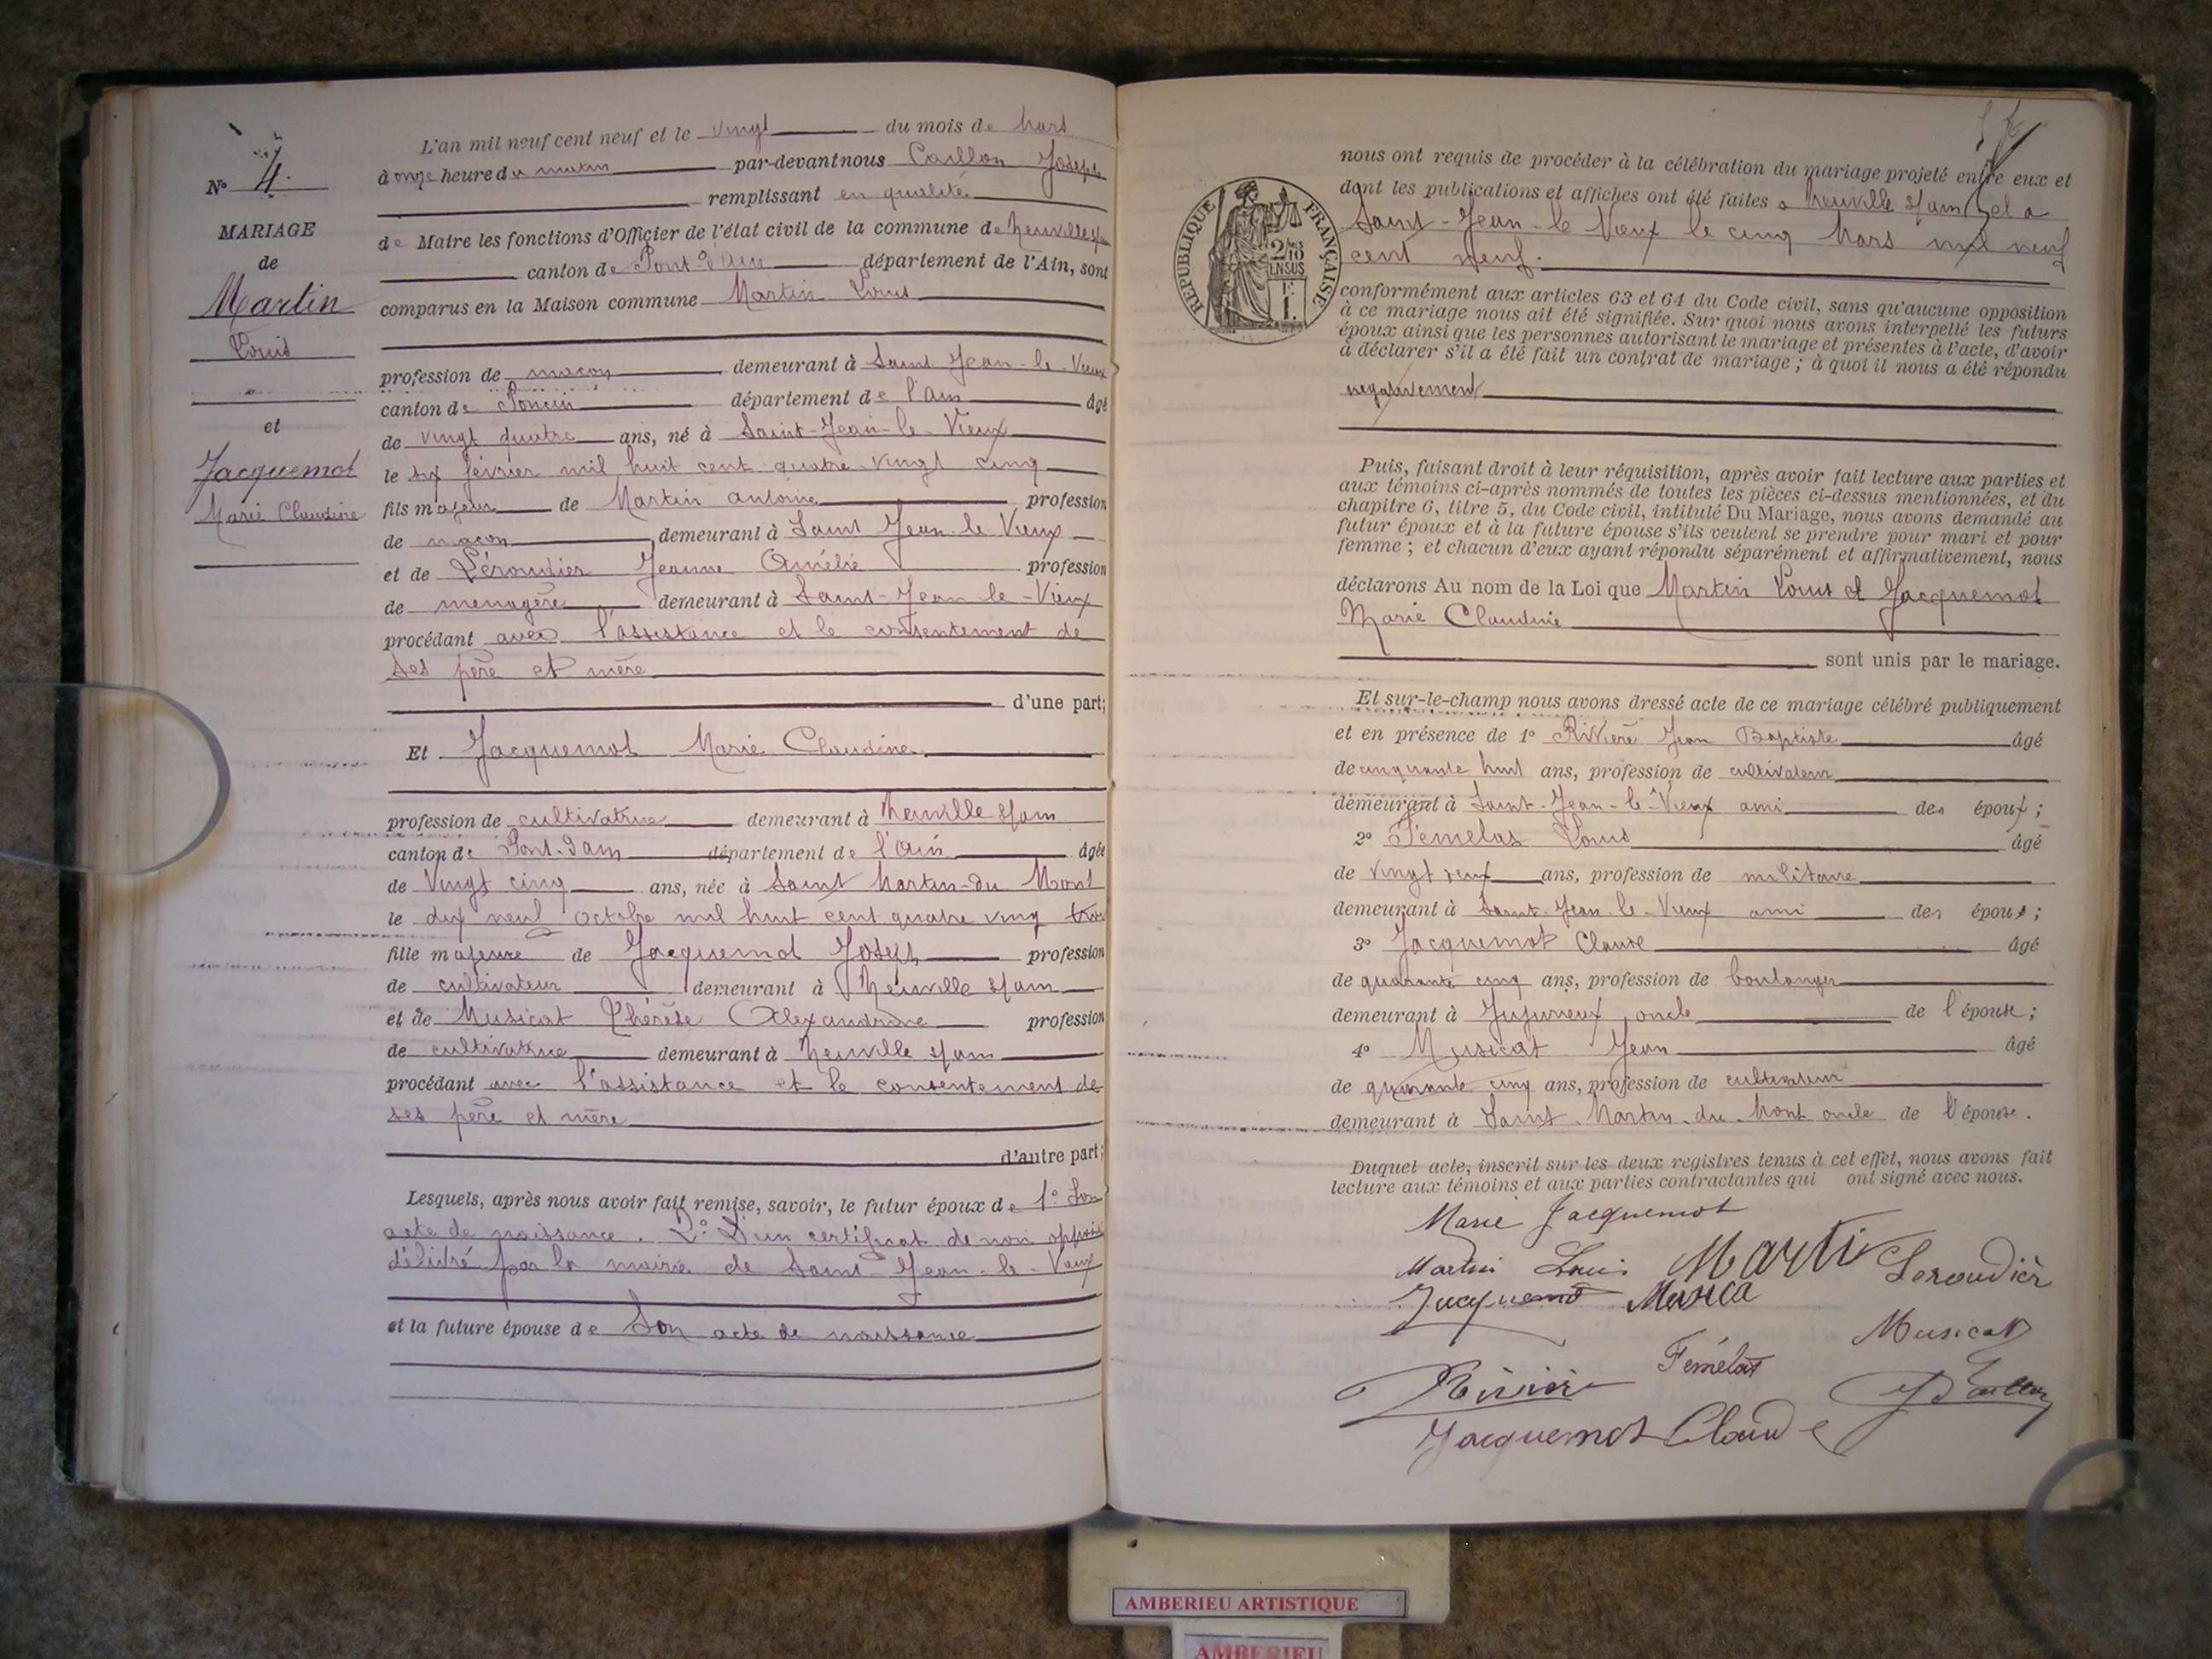 L'an mil neuf cent neuf et le vingt du mois de Mars
N° 4.
à onze heure du matin par-devant nous Caillon Joseph
remplissant en qualité
MARIAGE
de Maire les fonctions d'Officier de l'état civil de la commune de Neuville s/ain
de
canton de Pont-d'Ain département de l'Ain, sont
Martin
comparus en la Maison commune Martin Louis
Louis
profession de maçon demeurant à Saint-Jean-le-Vieux
canton de Poncin département de l'Ain âgé
et
de vingt quatre ans, né à Saint-Jean-le-Vieux
Jacquemot
le six février mil huit cent quatre-vingt cinq
Marie Claudine
fils majeur de Martin Antoine profession
de maçon demeurant à Saint Jean-le-Vieux
et de Léroudier Jeanne Amélie profession
de menagère demeurant à Saint-Jean-le-Vieux
procédant avec l'assistance et le consentement de
ses père et mère
d'une part;
Et Jacquemot Marie Claudine
profession de cultivatrice demeurant à Neuville s/ain
canton de Pont-d'ain département de l'Ain âgée
de Vingt cinq ans, née à Saint Martin-du Mont
le dix neuf octobre mil huit cent quatre ving trois
fille majeure de Jacquemot Joseph profession
de cultivateur demeurant à Neuville s/ain
et de Musicat Thérèse Alexandrine profession
de cultivatrice demeurant à Neuville s/ain
procédant avec l'assistance et le consentement de
ses père et mère
d'autre part;
Lesquels, après nous avoir fait remise, savoir, le futur époux de 1° Son
acte de naissance. 2° D'un certificat de non
délivré par la mairie de Saint-Jean-le-Vieux
et la future épouse de Son acte de naissance
nous ont requis de procéder à la célébration du mariage projeté entre eux et
dont les publications et affiches ont été faites à Neuville s/ain et à
Saint-Jean-le-Vieux le cinq Mars mil neuf
cent neuf.
RÉPUBLIQUE FRANÇAISE
2/10
EN SUS
1 F.
conformément aux articles 63 et 64 du Code civil, sans qu'aucune opposition
à ce mariage nous ait été signifiée. Sur quoi nous avons interpellé les futurs
époux ainsi que les personnes autorisant le mariage et présentes à l'acte, d'avoir
à déclarer s'il a été fait un contrat de mariage; à quoi il nous a été répondu
negativement
Puis, faisant droit à leur réquisition, après avoir fait lecture aux parties et
aux témoins ci-après nommés de toutes les pièces ci-dessus mentionnées, et du
chapitre 6, titre 5, du Code civil, intitulé Du Mariage, nous avons demandé au
futur époux et à la future épouse s'ils veulent se prendre pour mari et pour
femme; et chacun d'eux ayant répondu séparément et affirmativement, nous
déclarons Au nom de la Loi que Martin Louis et Jacquemot
Marie Claudine
sont unis par le mariage.
Et sur-le-champ nous avons dressé acte de ce mariage célébré publiquement
et en présence de 1° Rivière Jean Baptiste âgé
de cinquante huit ans, profession de cultivateur
demeurant à Saint-Jean-le-Vieux ami des époux;
2° Fémelas Louis âgé
de vingt deux ans, profession de militaire
demeurant à Saint-Jean-le-Vieux ami des époux;
3° Jacquemot Claude âgé
de quarante cinq ans, profession de boulanger
demeurant à Jujurieux, oncle de l'épouse;
4° Musicat Jean âgé
de quarante cinq ans, profession de cultivateur
demeurant à Saint-Martin-du-Mont oncle de l'épouse.
Duquel acte, inscrit sur les deux registres tenus à cet effet, nous avons fait
lecture aux témoins et aux parties contractantes qui ont signé avec nous.
Marie Jacquemot
Martin Louis Martin Leroudièr
Jacquemot Musica
Musicat
Fémélat
Rivière
Jacquemot Claude
AMBERIEU ARTISTIQUE
AMBERIEU